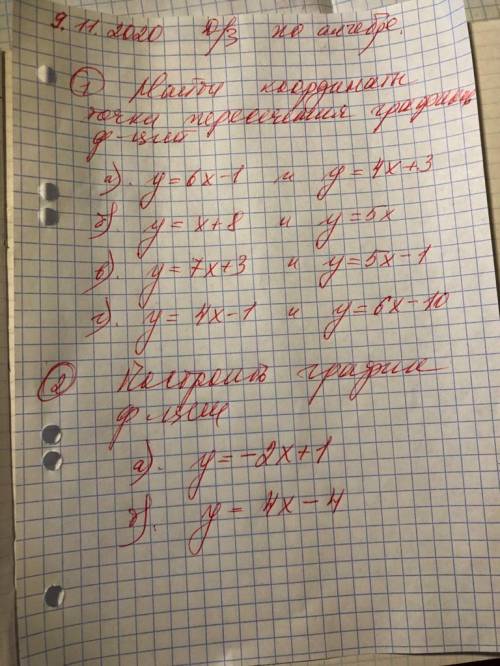 9.11.2020 д/з по алгебре.
① Найти координат
точки пересечения графиков
ф-ций
а). y=6x-1 и y=4x+3
б). y=x+8 и y=5x
в). y=7x+3 и y=5x-1
г). y=4x-1 и y=6x-10
② Построить график
ф-ции
а). y=-2x+1
б). y=4x-4